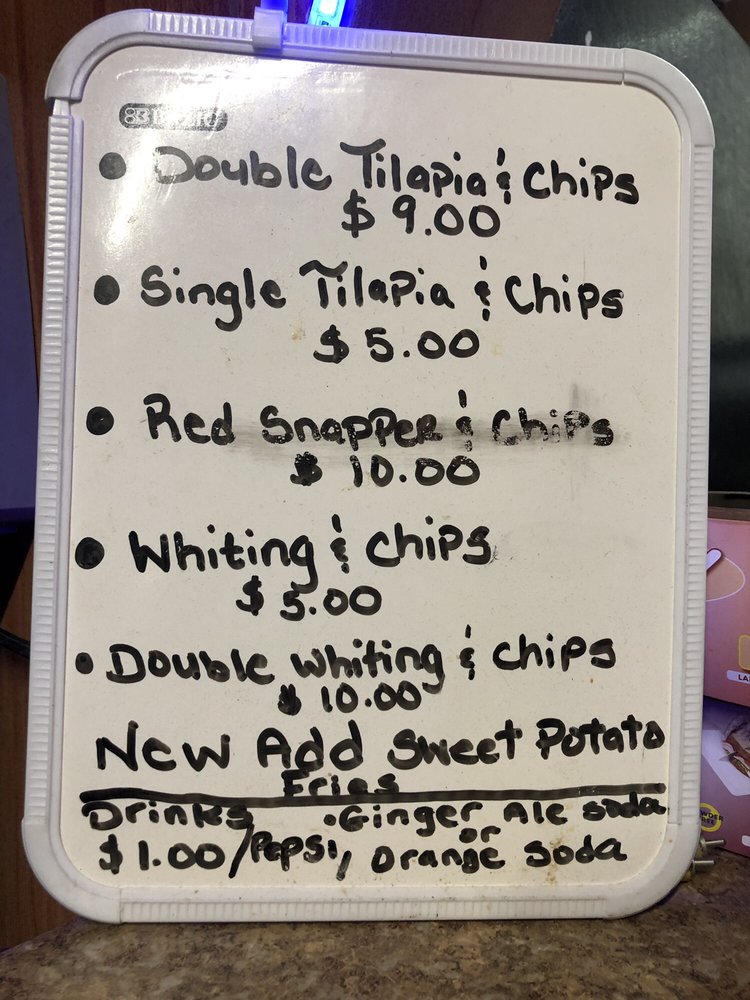 • Double Tilapia & Chips
$9.00
• Single Tilapia & Chips
$5.00
• Red Snapper & Chips
$10.00
• Whiting & Chips
$5.00
• Double Whiting & Chips
$10.00
New Add Sweet Potato
Fries
Drinks • Ginger Ale soda
or
$1.00/Pepsi, Orange Soda